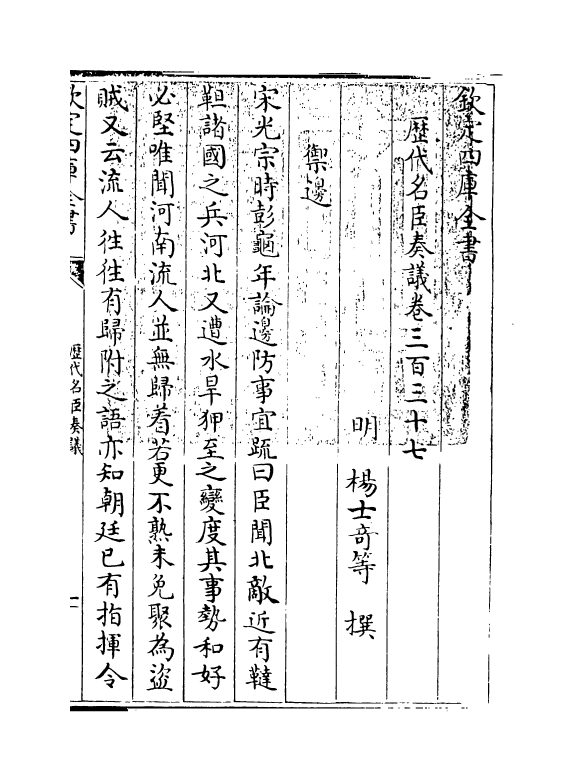 欽定四庫全書
歷代名臣奏議卷三百三十七
明 楊士奇等 撰
禦邊
宋光宗時彭龜年論邊防事宜疏曰臣聞北敵近有韃
靼諸國之兵河北又遭水旱狎至之變度其事勢和好
必堅唯聞河南流人並無歸着若更不熟未免聚為盜
賊又云流人徃徃有歸附之語亦知朝廷已有指揮令
欽定四庫全書
歷代名臣奏議
一